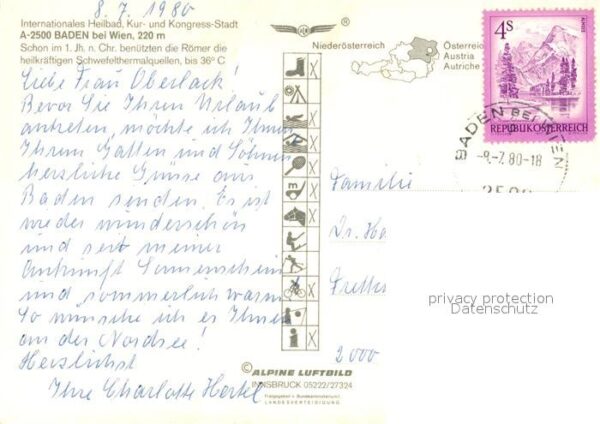 8.7.1980
Internationales Heilbad, Kur- und Kongress-Stadt
A-2500 BADEN bei Wien, 220 m
Schon im 1. Jh. n. Chr. benützten die Römer die
heilkräftigen Schwefelthermalquellen, bis 36° C
Liebe Frau Oberlack!
Bevor Sie Ihren Urlaub
antreten, möchte ich Ihnen
Ihrem Gatten und Söhnen
herzliche Grüsse aus
Baden senden. Es ist
wieder wunderschön
und seit meiner
Ankunft Sonnenschein
und sommerlich warm.
So wünsche ich es Ihnen
an der Nordsee!
Herzlichst
Ihre Charlotte Hertel
Niederösterreich
Österreich
Austria
Autriche
4S
REPUBLIK ÖSTERREICH
BADEN BEI WIEN
-8.-7.80-18
2500
Familie
Dr. Ha
2000
privacy protection
Datenschutz
© ALPINE LUFTBILD
INNSBRUCK 05222/27324
Freigegeben v. Bundesministerium f.
LANDESVERTEIDIGUNG